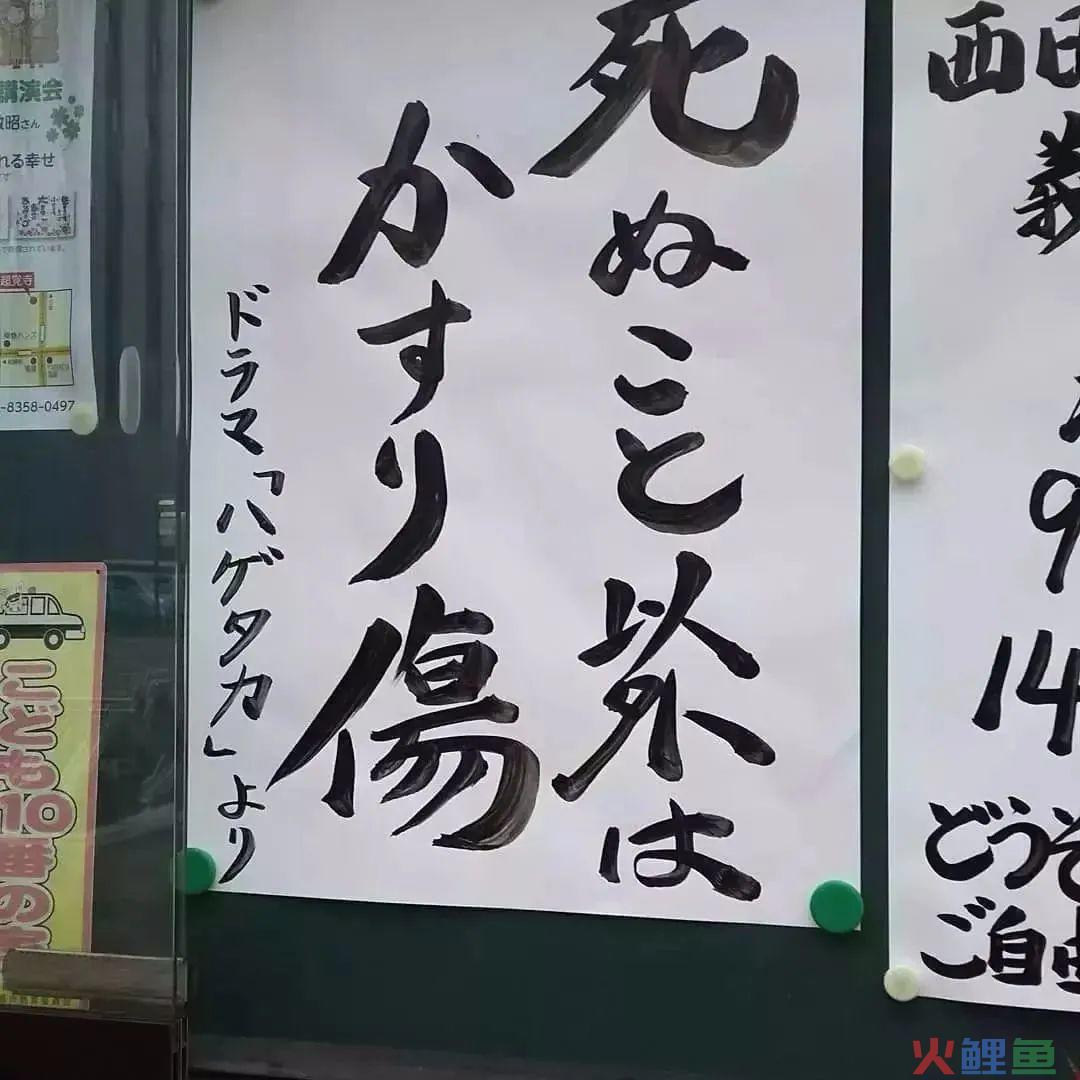 死ぬこと以外は
かすり傷
ドラマ「ハゲタカ」より
講演会
昭さん
れる幸せ
超覚寺
-8358-0497
こども
10
番の
西
義
9
14
どうぞ
ご自由
火鲤鱼